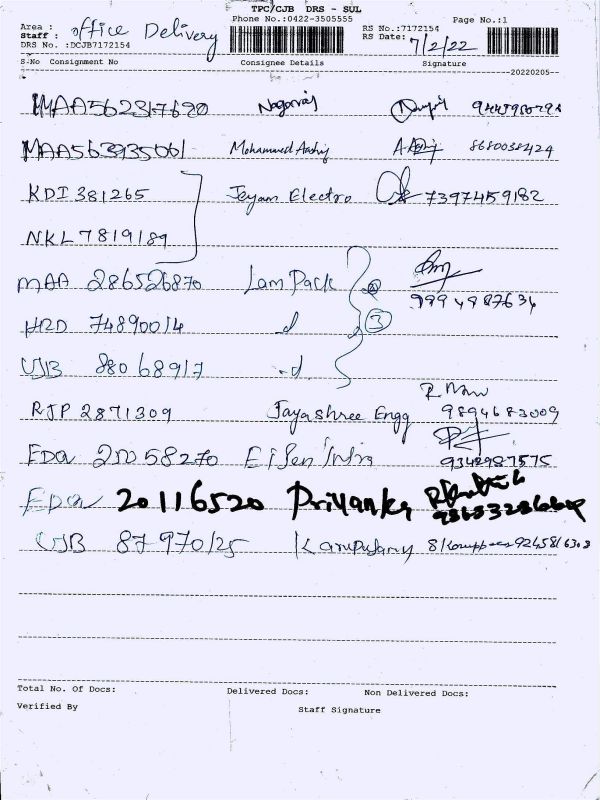 TPC/CJB DRS - SUL
Phone No.:0422-3505555
Page No.:1
Area :
Staff : office Delivery
RS No.:7172154
RS Date: 7/2/22
DRS No. :DCJB7172154
S.No Consignment No Consignee Details Signature
20220205
MAA562317620 Nagaraj
MAA563935061 Mohammed 8680038424
KDI 381265 Jeyam Electro 7397459182
NKL 7819189
MAA 286526870 Lam Pack
9994987634
HRD 74890014 d 3
UJB 88068917 d
RJP 2871309 Jayashree Engg 9894683009
EDA 20058270 9342987575
EDA 20116520 Priyanka
UJB 87970125 9245816303
Total No. Of Docs: Delivered Docs: Non Delivered Docs:
Verified By Staff Signature